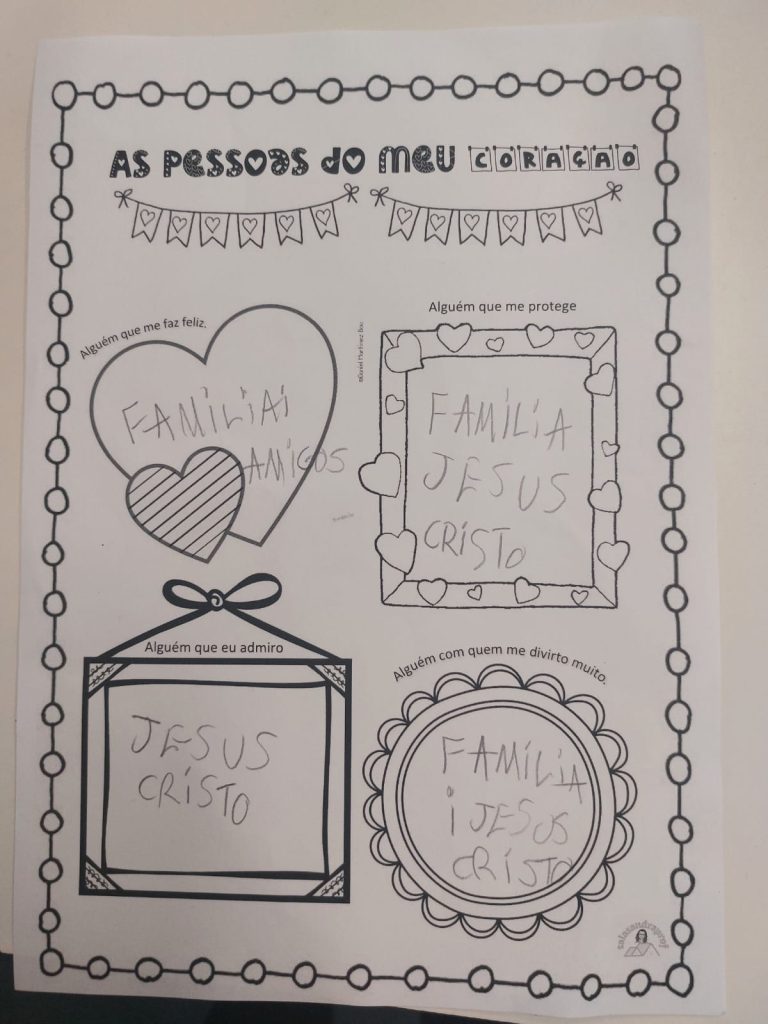 AS PESSOAS DO MEU CORAÇAO
Alguém que me faz feliz.
FAMILIAI
AMIGOS
Alguém que me protege
FAMÍLIA
JESUS
CRISTO
Alguém que eu admiro
JESUS
CRISTO
Alguém com quem me divirto muito.
FAMÍLIA
i JESUS
CRISTO
salasandraprof